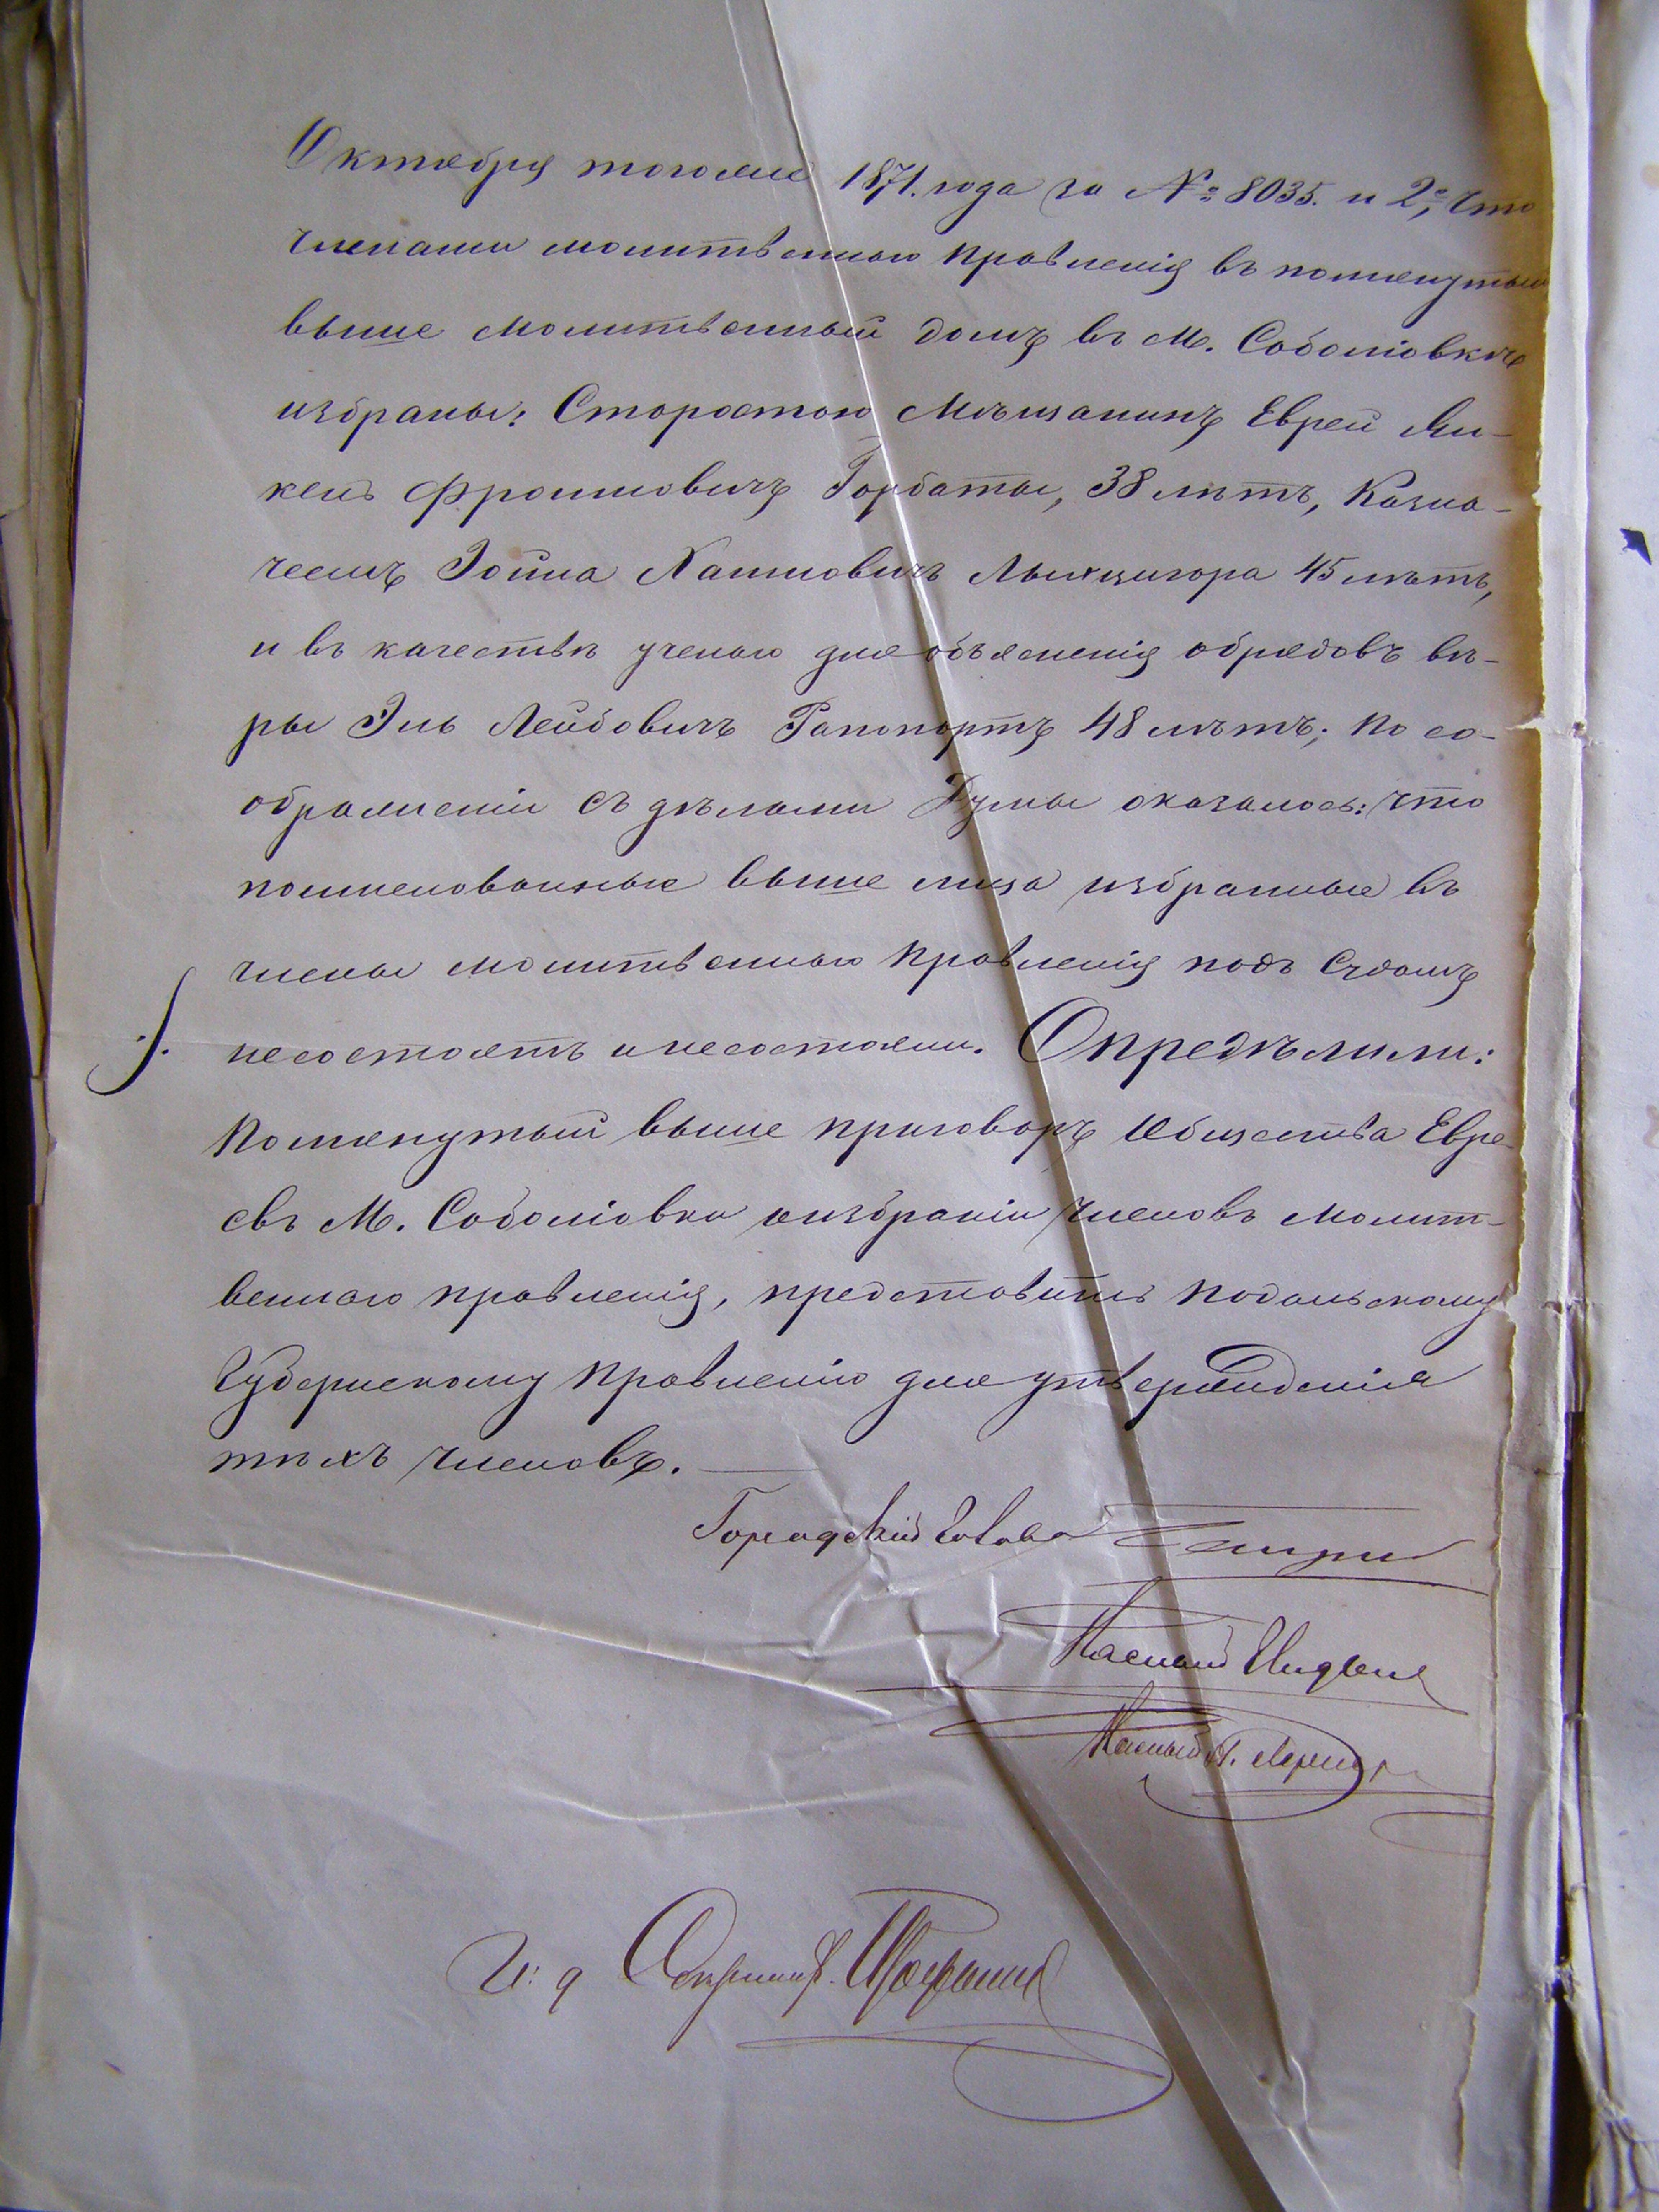 Октября тогоже 1871. года за № 8035. и 2е, что
членами молитвеннаго правленія въ помянутый
выше молитвенный домъ въ М. Соболіовкѣ
избраны: Старостою Мѣщанинъ Еврей Ян-
кель Фроимовичъ Горбаты, 38 лѣтъ, Казна-
чеемъ Іойна Хаимовичъ 45 лѣтъ,
и въ качествѣ ученаго для объясненія обрядовъ вѣ-
ры Эль Лейбовичъ Рапопортъ 48 лѣтъ; По со-
ображеніи съ дѣлами Думы оказалось: что
поименованные выше лица избранные въ
члены молитвеннаго правленія подъ Судомъ
несостоятъ и несостояли. Опредѣлили:
Помянутый выше приговоръ Общества Евре-
евъ М. Соболіовки о избраніи членовъ Молит-
веннаго правленія, представить Подольскому
Губернскому Правленію для утвержденія
тѣхъ членовъ.
Городской Голова
Гласный
Гласный
И: д Секретаря